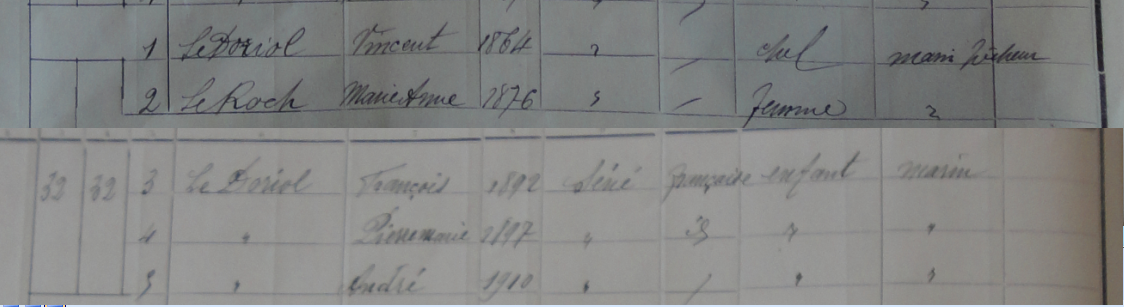 1 Le Doriol Vincent 1864 " / chef marin pêcheur
2 Le Roch Marie Anne 1876 " / femme "
32 32 3 Le Doriol François 1892 Séné française enfant marin
4 " Pierre marie 1897 " " " "
5 " André 1910 " / " "